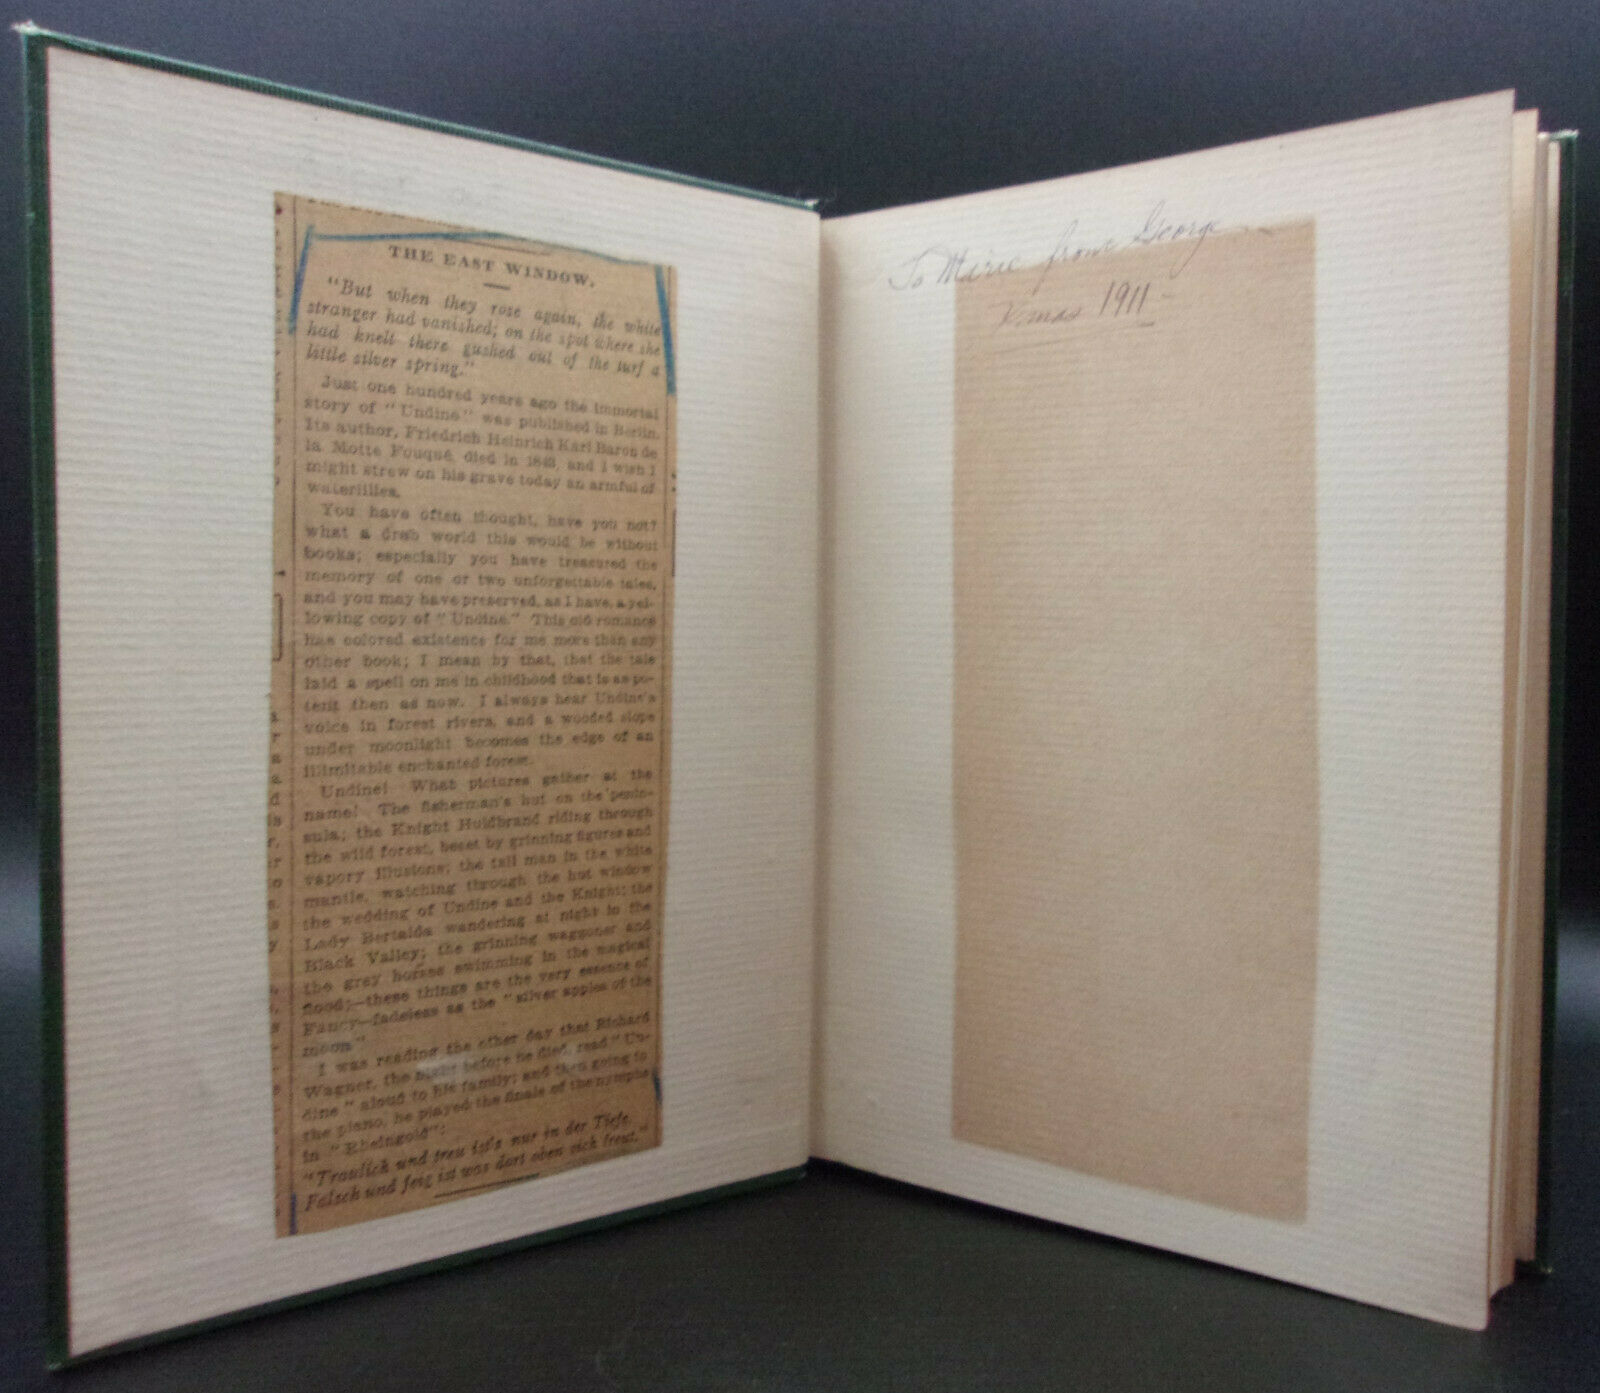 THE EAST WINDOW.
"But when they rose again, the white
stranger had vanished; on the spot where she
had knelt there gushed out of the turf a
little silver spring."
Just one hundred years ago the immortal
story of "Undine" was published in Berlin.
Its author, Friedrich Heinrich Karl Baron de
la Motte Fouqué, died in 1843, and I wish I
might strew on his grave today an armful of
waterlilies.
You have often thought, have you not?
what a drab world this would be without
books; especially you have treasured the
memory of one or two unforgettable tales,
and you may have preserved, as I have, a yel-
lowing copy of "Undine." This old romance
has colored existence for me more than any
other book; I mean by that, that the tale
laid a spell on me in childhood that is as po-
tent then as now. I always hear Undine's
voice in forest rivers, and a wooded slope
under moonlight becomes the edge of an
illimitable enchanted forest.
Undine! What pictures gather at the
name! The fisherman's hut on the penin-
sula; the Knight Huldbrand riding through
the wild forest, beset by grinning figures and
vapory illusions; the tall man in the white
mantle, watching through the hut window
the wedding of Undine and the Knight; the
Lady Bertalda wandering at night in the
Black Valley; the grinning waggoner and
the gray horses swimming in the magical
flood;—these things are the very essence of
Fancy—fadeless as the "silver apples of the
moon"
I was reading the other day that Richard
Wagner, the night before he died, read "Un-
dine" aloud to his family; and then going to
the piano, he played the finale of the nymphs
in "Rheingold":
"Traulich und treu ist's nur in der Tiefe.
Falsch und feig ist was dort oben sich freut."
To Marie from George
Xmas 1911-